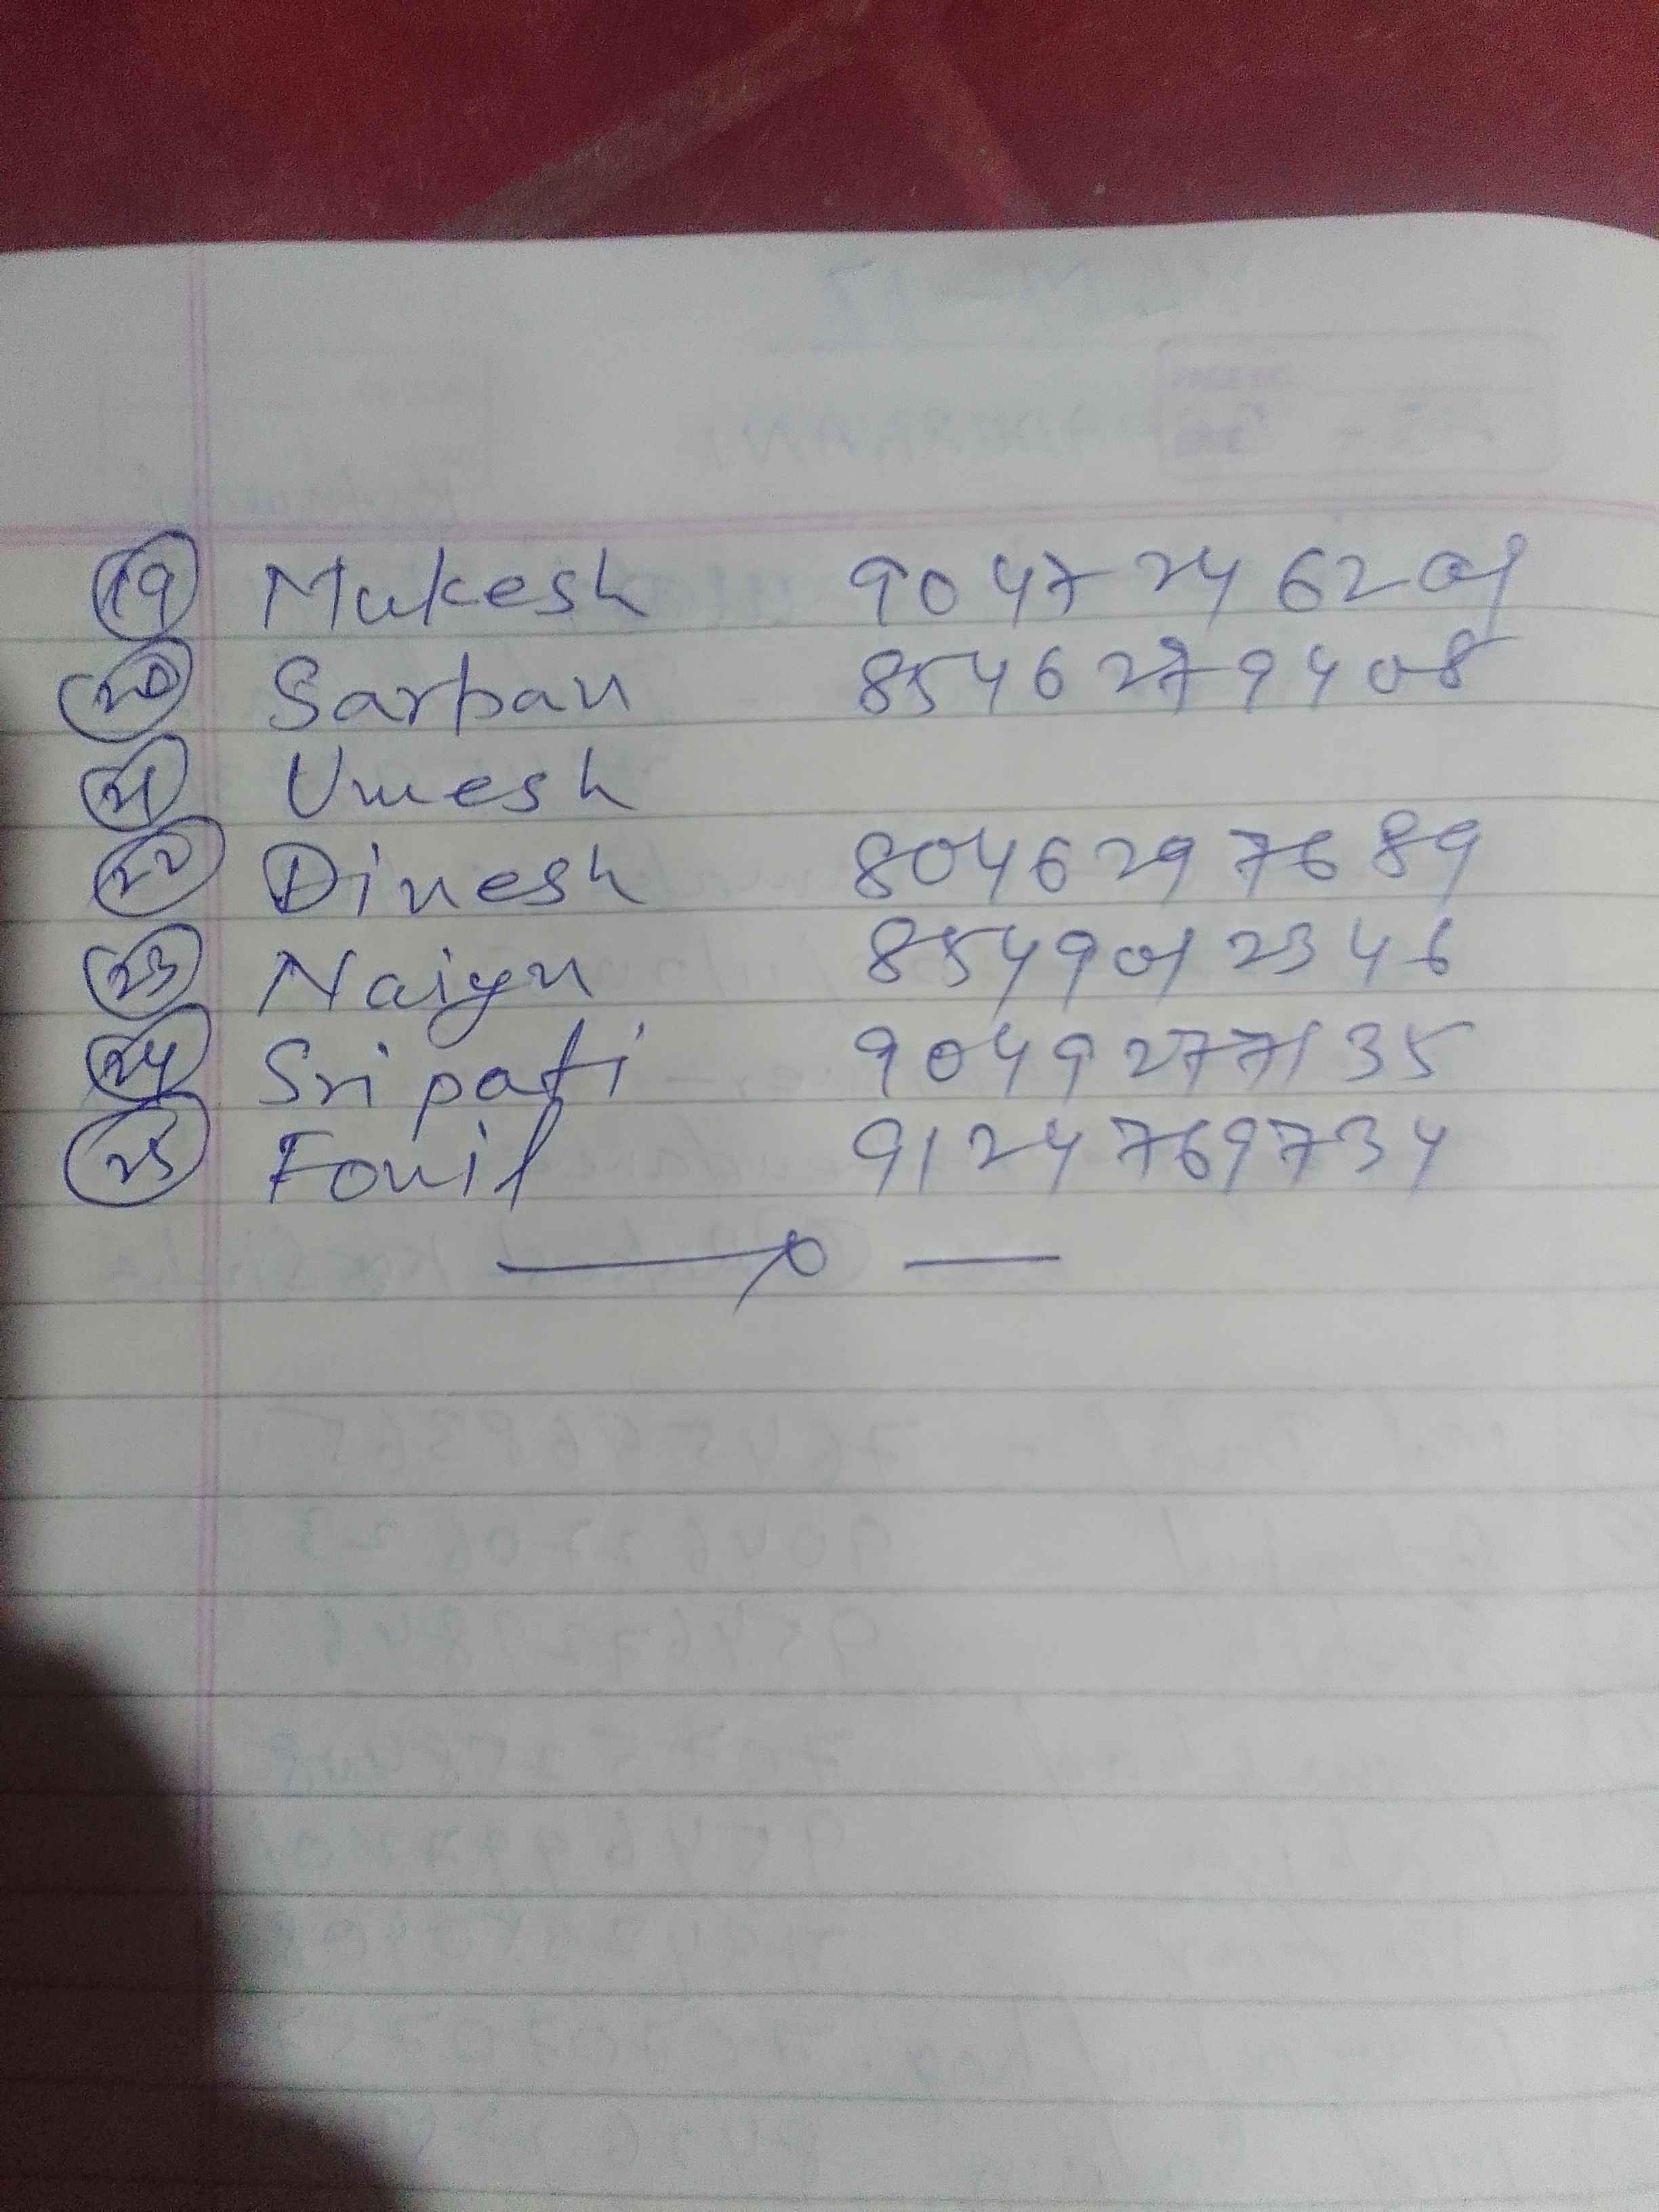 19 Mukesh 9047246201
20 Sarban 8546279408
21 Umesh
22 Dinesh 8046297689
23 Naiyn 8549012346
24 Sripati 9049277135
25 Fouil 9124769734